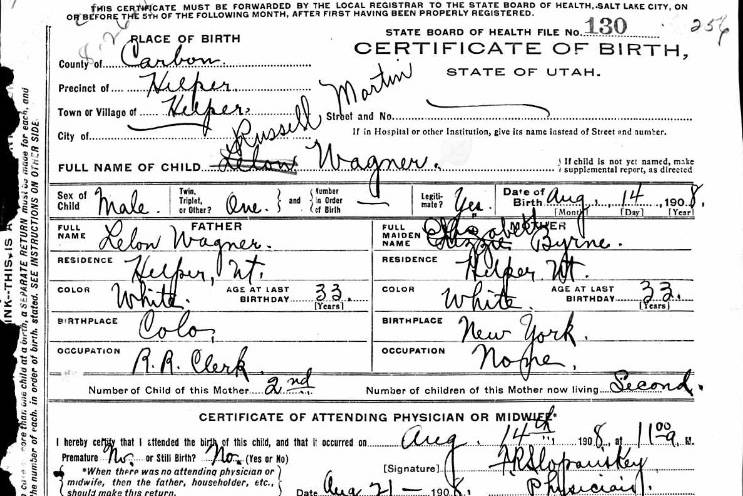 THIS CERTIFICATE MUST BE FORWARDED BY THE LOCAL REGISTRAR TO THE STATE BOARD OF HEALTH, SALT LAKE CITY, ON
OR BEFORE THE 5TH OF THE FOLLOWING MONTH, AFTER FIRST HAVING BEEN PROPERLY REGISTERED.
STATE BOARD OF HEALTH FILE No. 130
256
PLACE OF BIRTH
CERTIFICATE OF BIRTH,
STATE OF UTAH.
County of Carbon.
Precinct of Helper.
Town or Village of Helper. Street and No.
City of
If in Hospital or other Institution, give its name instead of Street and number.
Russell Martin
FULL NAME OF CHILD Lelon Wagner. { If child is not yet named, make supplemental report, as directed
Sex of Child Male. Twin, Triplet, or Other? One. } and { Number in Order of Birth — Legiti-mate? Yes. Date of Birth Aug 14 1908.
(Month) (Day) (Year)
FATHER
FULL NAME Lelon Wagner.
RESIDENCE Helper, Ut.
COLOR White. AGE AT LAST BIRTHDAY 33. (Years)
BIRTHPLACE Colo.
OCCUPATION R. R. Clerk
MOTHER
FULL MAIDEN NAME Elizabeth Byrne.
RESIDENCE Helper Ut.
COLOR White. AGE AT LAST BIRTHDAY 33. (Years)
BIRTHPLACE New York.
OCCUPATION None.
Number of Child of this Mother 2nd Number of children of this Mother now living Second.
CERTIFICATE OF ATTENDING PHYSICIAN OR MIDWIFE*
I hereby certify that I attended the birth of this child, and that it occurred on Aug. 14th, 1908, at 11 00 a. M.
Premature No. or Still Birth? No. (Yes or No)
*When there was no attending physician or
midwife, then the father, householder, etc.,
should make this return.
(Signature)
Physician
Date Aug 21 — 1908.
INK--THIS IS A
a SEPARATE RETURN must be made for each, and
the number of each, in order of birth, stated. SEE INSTRUCTIONS ON OTHER SIDE.